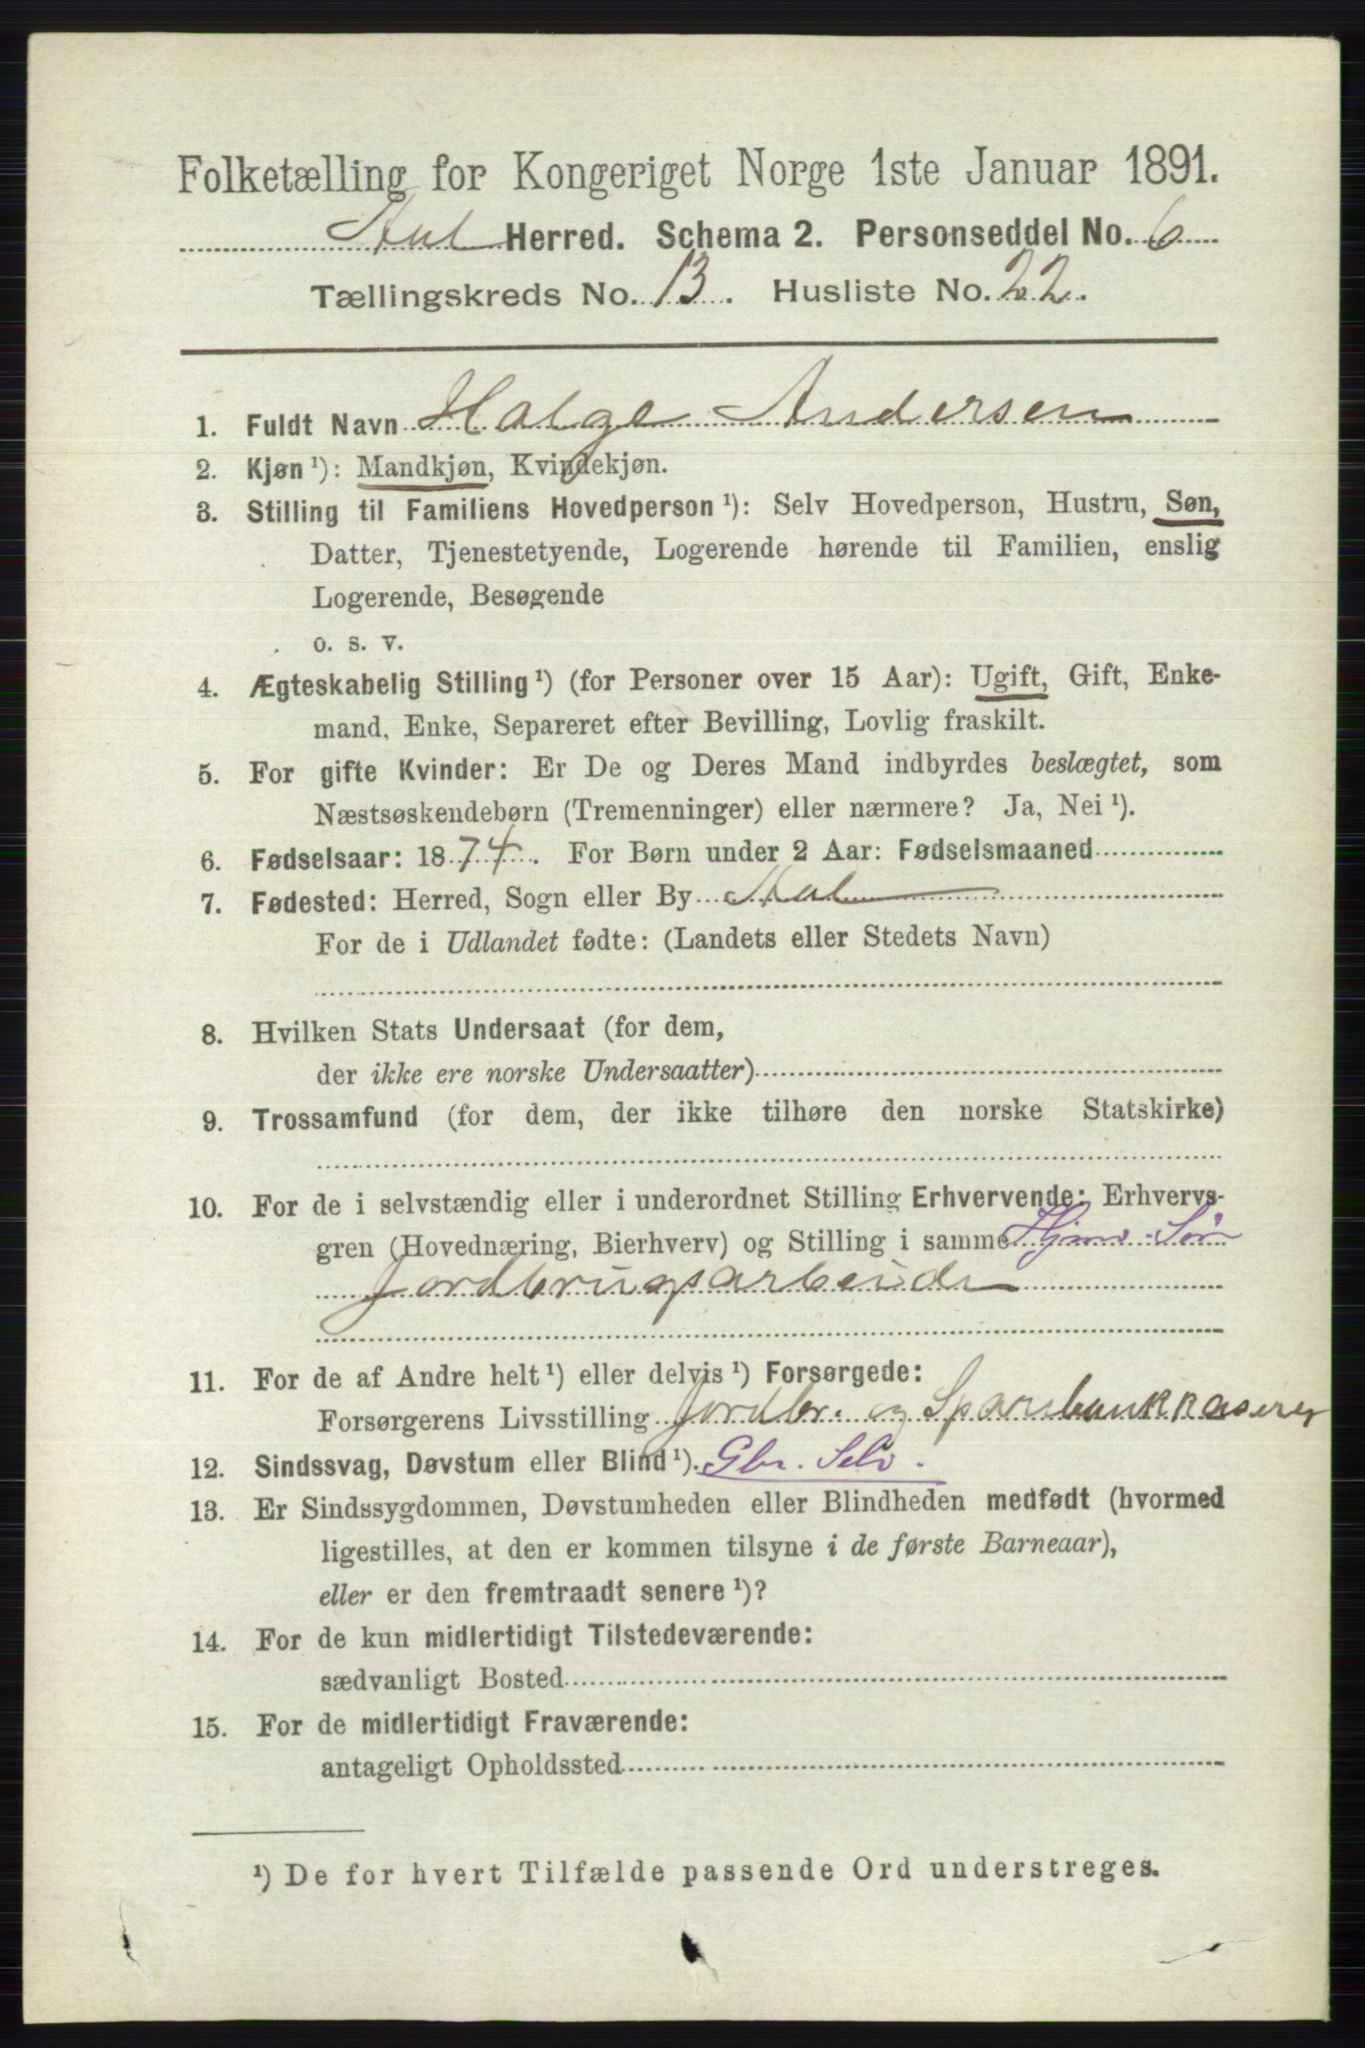 Folketælling for Kongeriget Norge 1ste Januar 1891.
Aal Herred. Schema 2. Personseddel No. 6
Tællingskreds No. 13. Husliste No. 22.
1. Fuldt Navn Halge Andersen
2. Kjøn ¹): Mandkjøn, Kvindekjøn.
3. Stilling til Familiens Hovedperson ¹): Selv Hovedperson, Hustru, Søn,
Datter, Tjenestetyende, Logerende hørende til Familien, enslig
Logerende, Besøgende
o. s. v.
4. Ægteskabelig Stilling ¹) (for Personer over 15 Aar): Ugift, Gift, Enke-
mand, Enke, Separeret efter Bevilling, Lovlig fraskilt.
5. For gifte Kvinder: Er De og Deres Mand indbyrdes beslægtet, som
Næstsøskendebørn (Tremenninger) eller nærmere? Ja, Nei ¹).
6. Fødselsaar: 1874. For Børn under 2 Aar: Fødselsmaaned
7. Fødested: Herred, Sogn eller By Aal
For de i Udlandet fødte: (Landets eller Stedets Navn)
8. Hvilken Stats Undersaat (for dem,
der ikke ere norske Undersaatter)
9. Trossamfund (for dem, der ikke tilhøre den norske Statskirke)
10. For de i selvstændig eller i underordnet Stilling Erhvervende: Erhvervs-
gren (Hovednæring, Bierhverv) og Stilling i samme Hjmv. Søn
Jordbrugsarbeide
11. For de af Andre helt ¹) eller delvis ¹) Forsørgede:
Forsørgerens Livsstilling Jordbr. og Sparebankkaserer
12. Sindssvag, Døvstum eller Blind ¹). Gbr. Selv.
13. Er Sindssygdommen, Døvstumheden eller Blindheden medfødt (hvormed
ligestilles, at den er kommen tilsyne i de første Barneaar),
eller er den fremtraadt senere ¹)?
14. For de kun midlertidigt Tilstedeværende:
sædvanligt Bosted
15. For de midlertidigt Fraværende:
antageligt Opholdssted
¹) De for hvert Tilfælde passende Ord understreges.